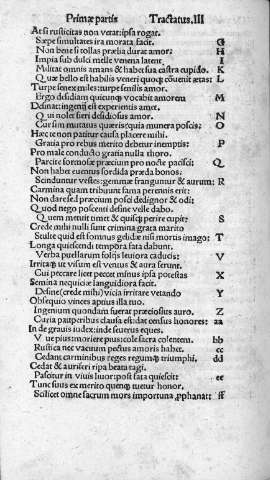 Primæ partis Tractatus.III
At si rusticitas non verat: ipsa rogat.
Sæpe simultates ira morata facit. G
Non bene si tollas prælia durat amor: H
Impia sub dulci melle venena latent I
Militat omnis amans & habet sua castra cupido. K
Quæ bello est habilis veneri quoq; cōuenit ætas: L
Turpe senex miles: turpe senilis amor.
Ergo desidiam quicunq; vocabit amorem M
Desinat: ingenij est experientis amor.
Qui nolet fieri desidiosus amor. N
Cur sim mutatus quæris: quia munera poscis: O
Hæc te non patitur causa placere mihi.
Gratia pro rebus merito debetur inemptis: P
Pro male conducto gratia nulla thoro.
Parcite formosæ præcium pro nocte pacisci: Q
Non habet euentus sordida præda bonos:
Scinduntur vestes: gemmæ franguntur & aurum: R
Carmina quam tribuunt fama perennis erit:
Non dare sed præcium posci dedignor & odi:
Quod nego poscenti desine velle dabo.
Quem metuit timet & quisq; perire cupit: S
Crede mihi nulli sunt crimina grata marito
Stulte quid est somnus gelidæ nisi mortis imago: T
Longa quiescendi tempora fata dabunt.
Verba puellarum folijs leuiora caducis: V
Irritaq; vt visum est ventus & aura ferunt.
Cui peccare licet peccat minus ipsa potestas X
Semina nequiciæ languidiora facit.
Desine (crede mihi) vicia irritare vetando Y
Obsequio vinces aptius illa tuo.
Ingenium quondam fuerat præciosius auro. Z
Curia pauperibus clausa est: dat census honores: aa
In de grauis iudex: inde seuerus eques.
Viue pius: moriere pius: cole sacra colentem. bb
Rustica nec vacuum pectus amoris habet. cc
Cedant carminibus reges regumq; triumphi, dd
Cedat & auriferi ripa beata tagi.
Pascitur in viuis liuor: post fata quiescit: ee
Tunc suus ex merito quemq; tuetur honor.
Scilicet omne sacrum mors importuna, pphanat: ff